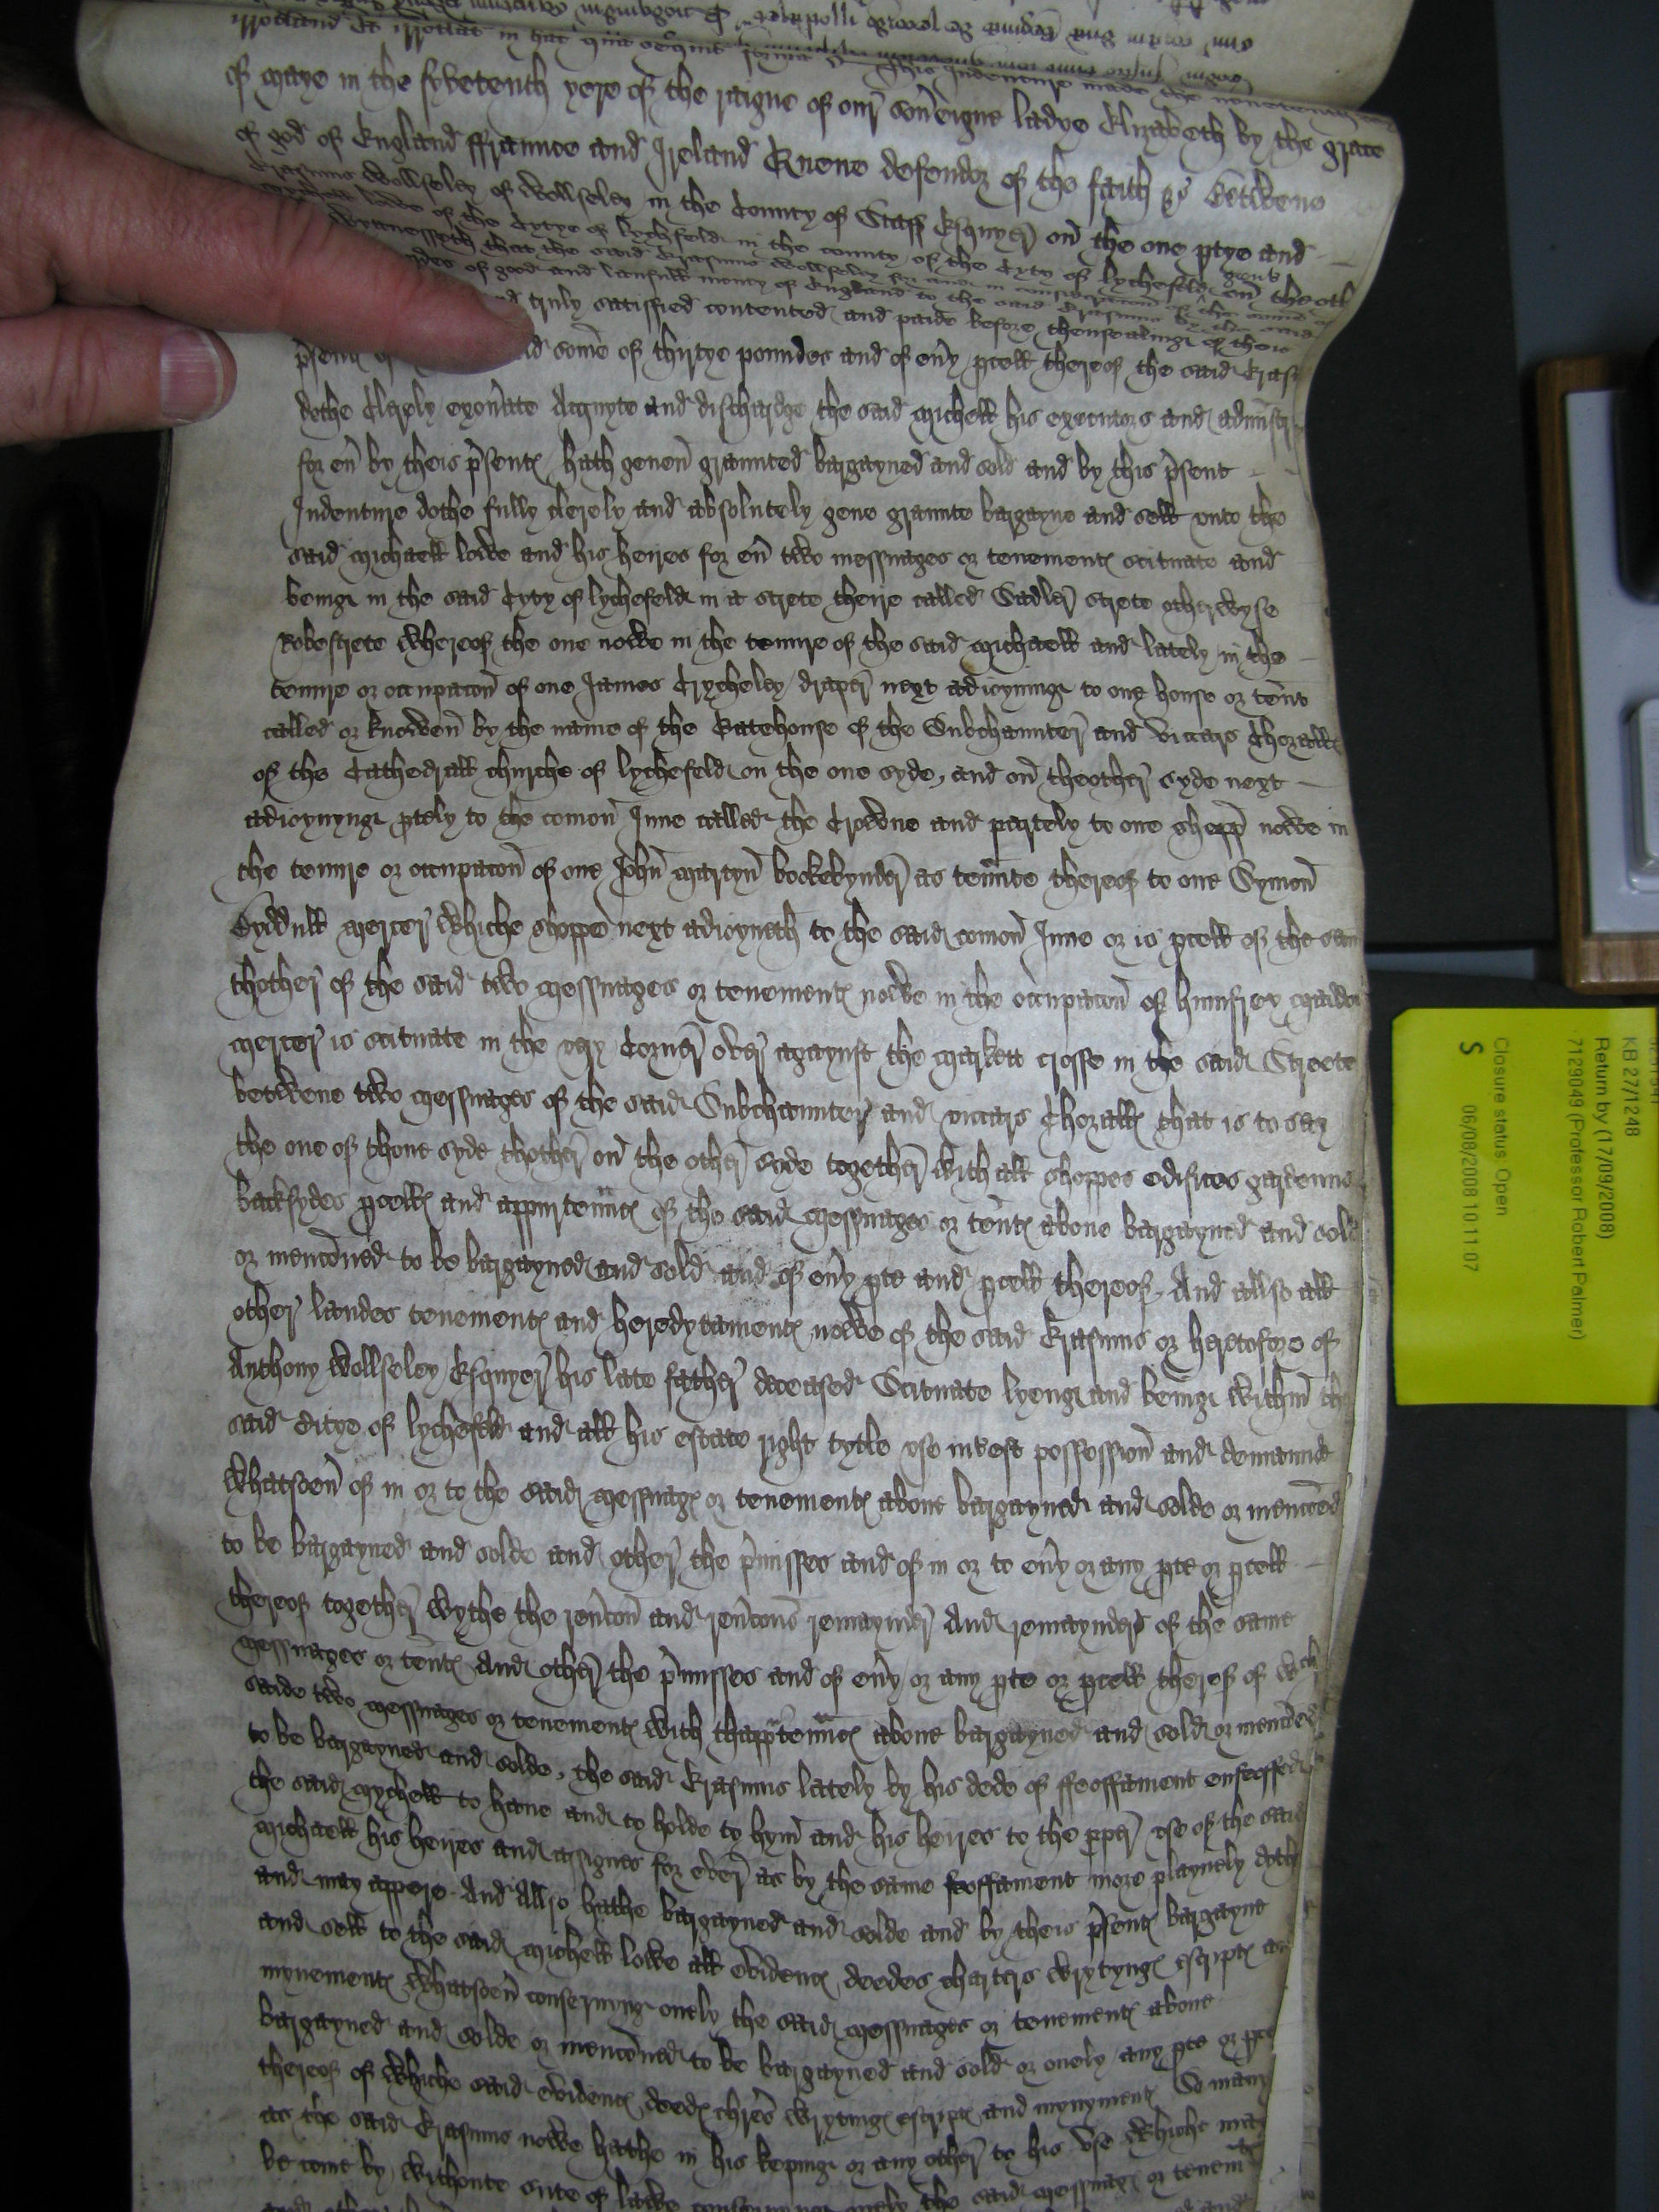 irrotuland Et irrotulat in hec verba This Indenture made the
of Maye in the fyvetenth yere of the raigne of our Sov'eigne ladye Elizabeth by the grace
of god of England ffraunce and Ireland Quene defendor of the faith &c Betwene
Erasmus Wollseley of Wollseley in the County of Staff Esquyer on the one ptye and
Lowe of the Cytye of Lychfeld in the county of the Cyty of Lychefeld gent on the oth
Wytnessyth that the said Erasmus Wollseley for and in consideracon of the some of
of good and laufull money of England to the said Erasmus by the said
truly satisfied contented and paide before thensealinge of theis
p'sent some of thirtye poundes and of eu'y pcell thereof the said Eras
dothe Clerely exon'ate Acquyte and dischardge the said Michell his executors and admistr
for eu' by theis p'sent hath geuen graunted bargayned and sold and by this p'sent
Indenture dothe fully clerely and absolutely geue graunte bargayne and sell unto the
said Michaell Lowe and his heires for eu' two messuages or tenement scituate and
beinge in the said Cyty of Lychefeld in a strete there called Sadler strete otherwyse
Robestrete Whereof the one nowe in the tenure of the said Michaell and lately in the
tenure or occupacon of one James Crycheley draper next adioyninge to one house or ten't
called or knowen by the name of the Gatehouse of the Subchaunter and Viccars Chorall
of the Cathedrall churche of Lychefeld on the one syde, and on theother syde next
adioynynge ptely to the comon Inne called the Crowne and partely to one shopp nowe in
the tenure or occupacon of one John Martyn bockebynder as ten'nte thereof to one Symon
Byddull mercer Whiche shoppe next adioyneth to the said comon Inne or is pcell of the sam
thother of the said two Messuages or tenement nowe in the occupacon of humfrey
mercer is scituate in the very Corner over agaynst the Markett crosse in the said Streete
betwene two Messuages of the said Subchaunter and viccars Chorall that is to say
the one of thone syde thother on the other syde together With all shoppes edifices gardeins
backsydes pcell and appurten'nc of the said Messuages or ten't above bargayned and sold
or menconed to be bargayned and sold and of eu'y pte and pcell thereof. And allso all
other landes tenement and heredytament nowe of the said Erasmus or heretofore of
Anthony Wollseley Esquyer his late father deceased Scituate lyeng and beinge within the
said citye of Lychefeld and all his estate right tytle use int'est possession and demaund
Whatsoeu' of in or to the said Messuag or tenement above bargayned and solde or menconed
to be bargayned and solde and other the p'misses and of in or to eu'y or any pte or pcell
thereof together Wythe the reu'con and reu'cons remaynder And remaynders of the same
Messuages or ten't And other the p'misses and of eu'y or any pte or pcell thereof of wch
saide two Messuages or tenement With thapp'ten'nc above bargayned and sold or menconed
to be bargayned and solde, the said Erasmus lately by his dede of ffeoffament enfeoffed
the said Mychell to haue and to holde to hym and his heires to the pper use of the said
Michaell his heires and assignes for ever as by the same feoffament more playnely doth
and may appere. And Allso hathe bargayned and solde and by theis p'sent bargayne
and sell to the said Michell Lowe all evidenc deedes charters Wrytyng escript and
mynement Whatsoeu' consernyng onely the said Messuages or tenement above
bargayned and solde or menconed to be bargayned and sold or onely any pte or pcell
thereof of Whiche said evidenc deed chres Wryting escript and mynyment So many
as the said Erasmus nowe hathe in his keping or any other to his use Whiche may
be come by Withoute sute of lawe onely the said Messuag or tenemt
KB 27/1248
Return by (17/09/2008)
7129049 (Professor Robert Palmer)
Closure status: Open
S 06/08/2008 10:11:07